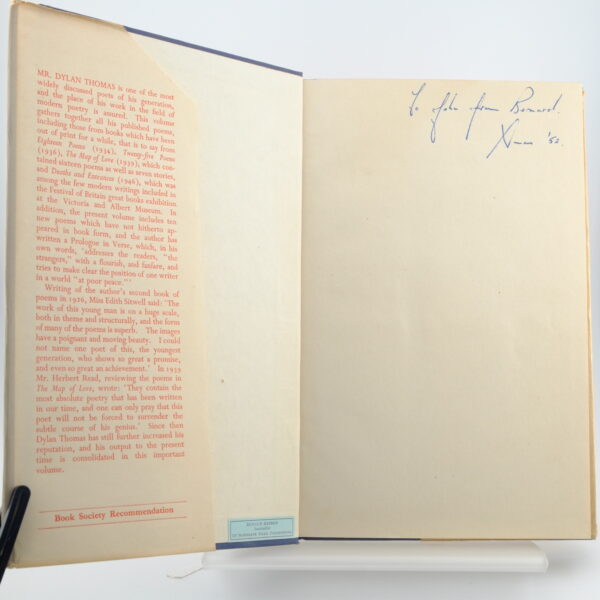 MR. DYLAN THOMAS is one of the most
widely discussed poets of his generation,
and the place of his work in the field of
modern poetry is assured. This volume
gathers together all his published poems,
including those from books which have been
out of print for a while, that is to say from
Eighteen Poems (1934), Twenty-five Poems
(1936), The Map of Love (1939), which con-
tained sixteen poems as well as seven stories,
and Deaths and Entrances (1946), which was
among the few modern writings included in
the Festival of Britain great books exhibition
at the Victoria and Albert Museum. In
addition, the present volume includes ten
new poems which have not hitherto ap-
peared in book form, and the author has
written a Prologue in Verse, which, in his
own words, 'addresses the readers, "the
strangers," with a flourish, and fanfare, and
tries to make clear the position of one writer
in a world "at poor peace."'
Writing of the author's second book of
poems in 1926, Miss Edith Sitwell said: 'The
work of this young man is on a huge scale,
both in theme and structurally, and the form
of many of the poems is superb. The images
have a poignant and moving beauty. I could
not name one poet of this, the youngest
generation, who shows so great a promise,
and even so great an achievement.' In 1939
Mr. Herbert Read, reviewing the poems in
The Map of Love, wrote: 'They contain the
most absolute poetry that has been written
in our time, and one can only pray that this
poet will not be forced to surrender the
subtle course of his genius.' Since then
Dylan Thomas has still further increased his
reputation, and his output to the present
time is consolidated in this important
volume.
Book Society Recommendation
To John from Bernard.
Xmas '52.